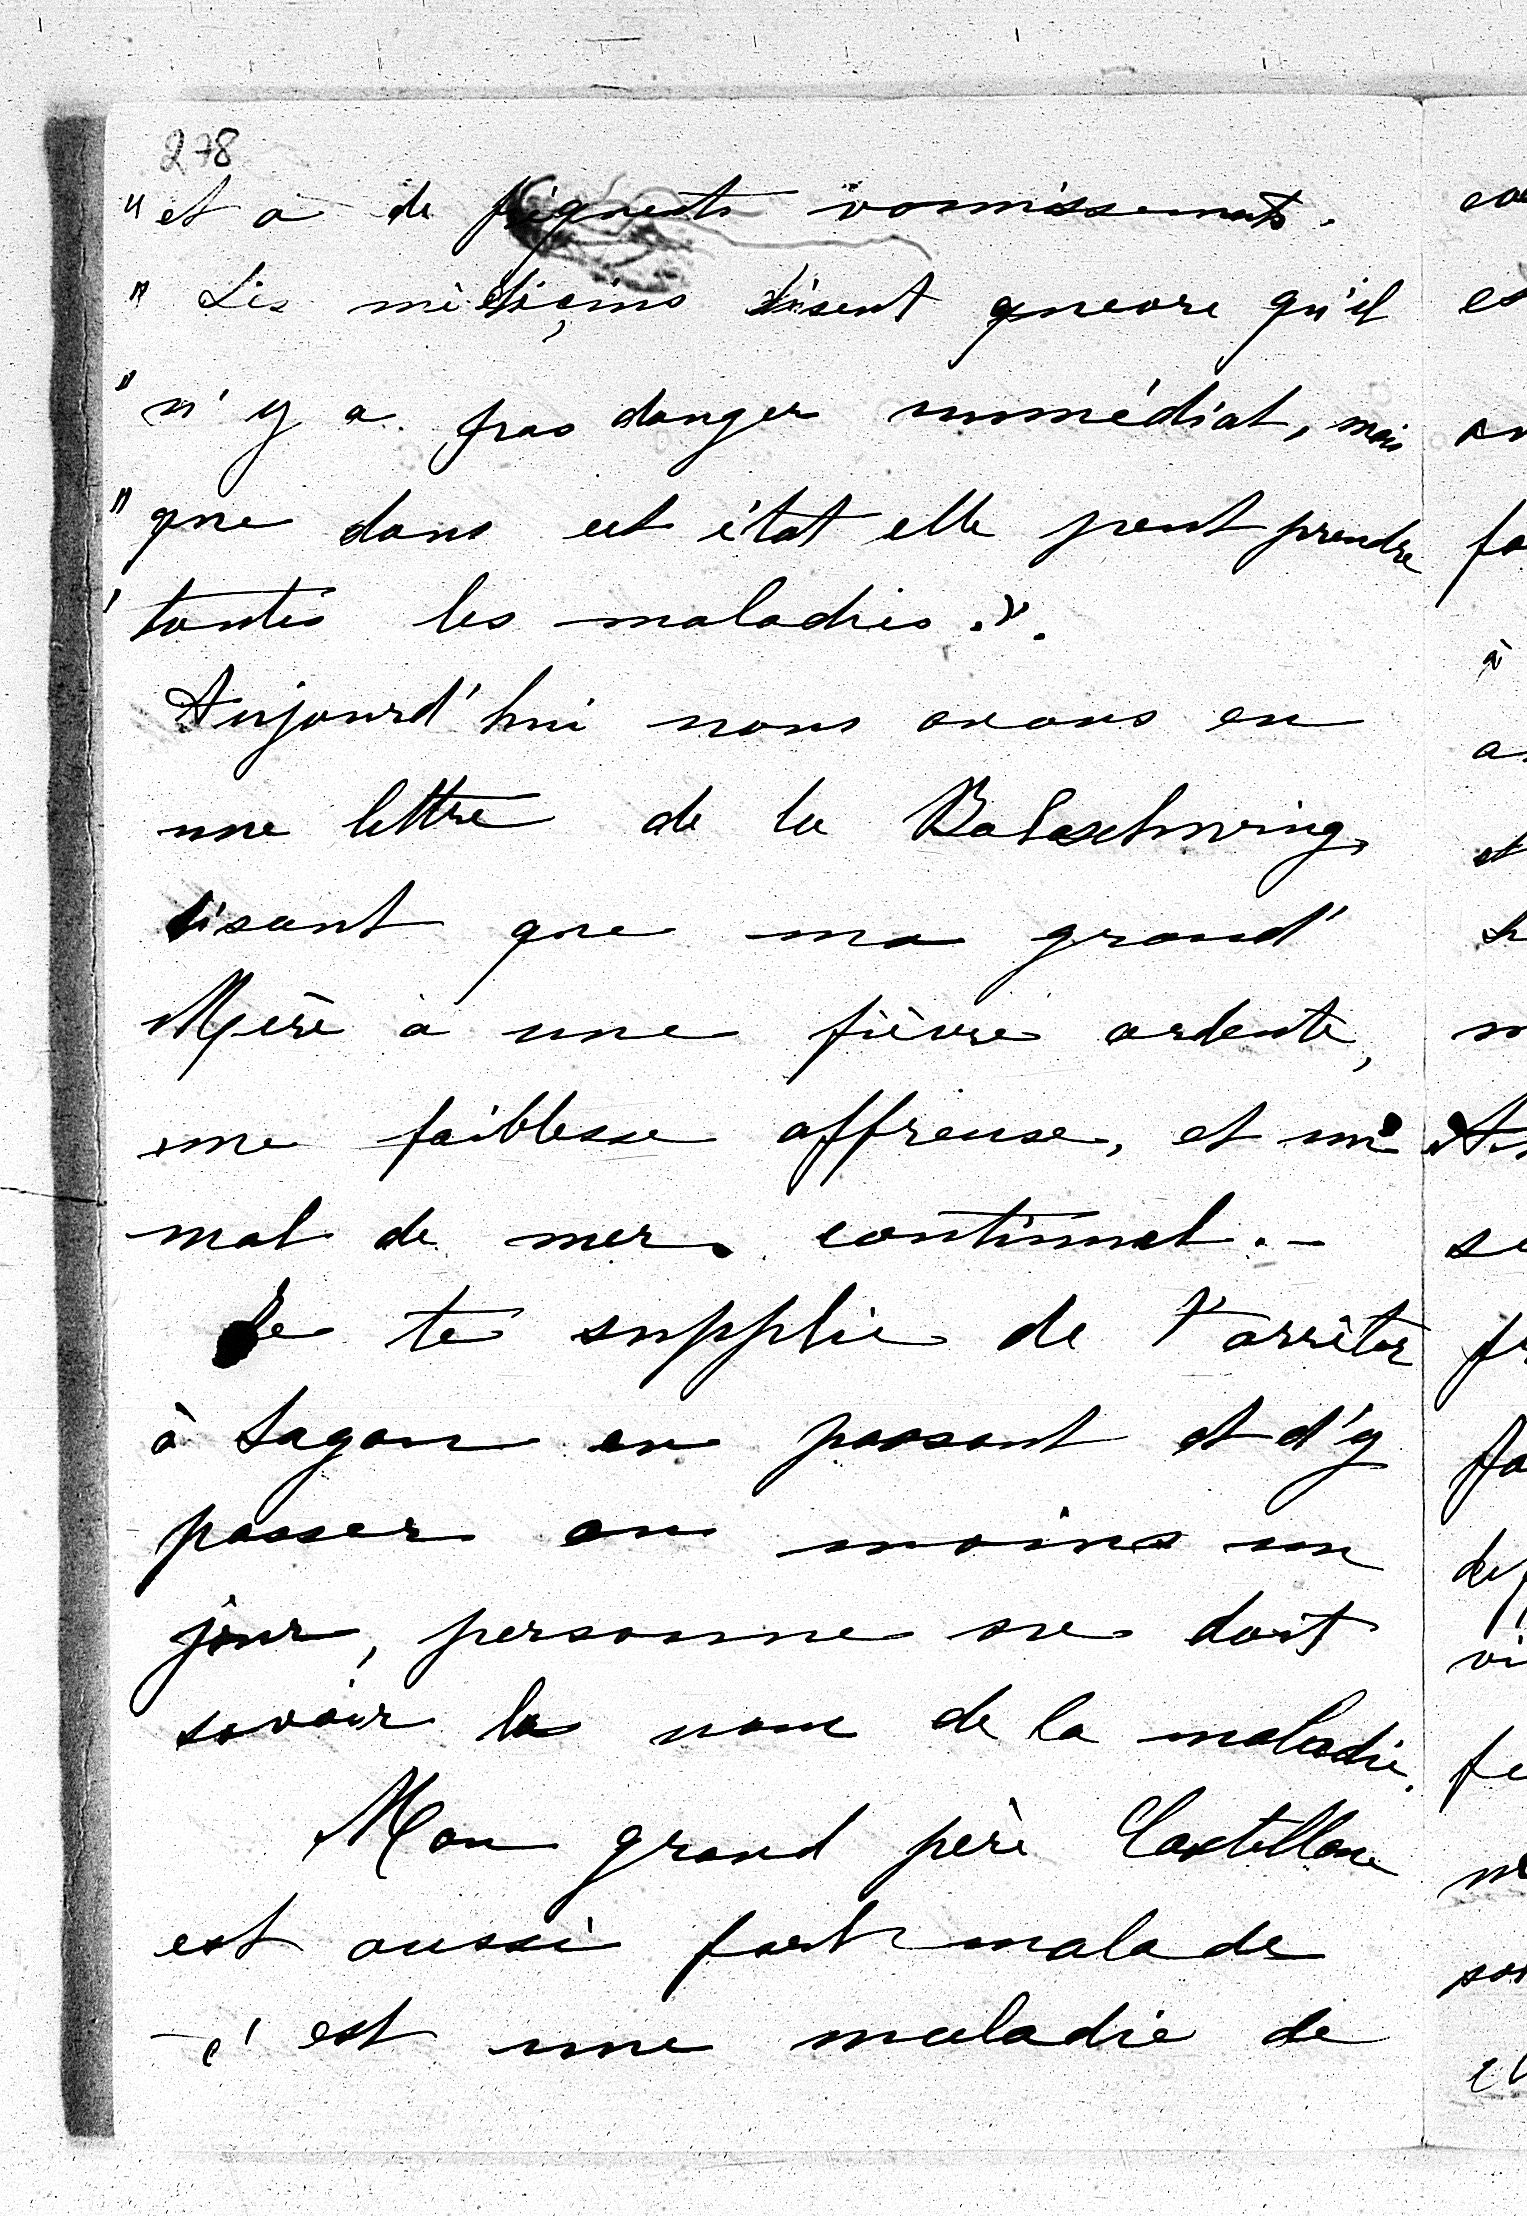 278
" et a de fréquents vomissements.
" Les médecins disent encore qu'il
" n'y a pas danger immédiat, mais
" que dans cet état elle peut prendre
' toutes les maladies.".
Aujourd'hui nous avons eu
une lettre de la
disant que ma grand'
Mère a une fièvre ardente,
une faiblesse affreuse, et un
mal de mer continuel.-
Je te supplie de t'arrêter
à Sagan en passant et d'y
passer au moins un
jour, personne ne doit
savoir le nom de la maladie.
Mon grand père Castellane
est aussi fort malade
c'est une maladie de